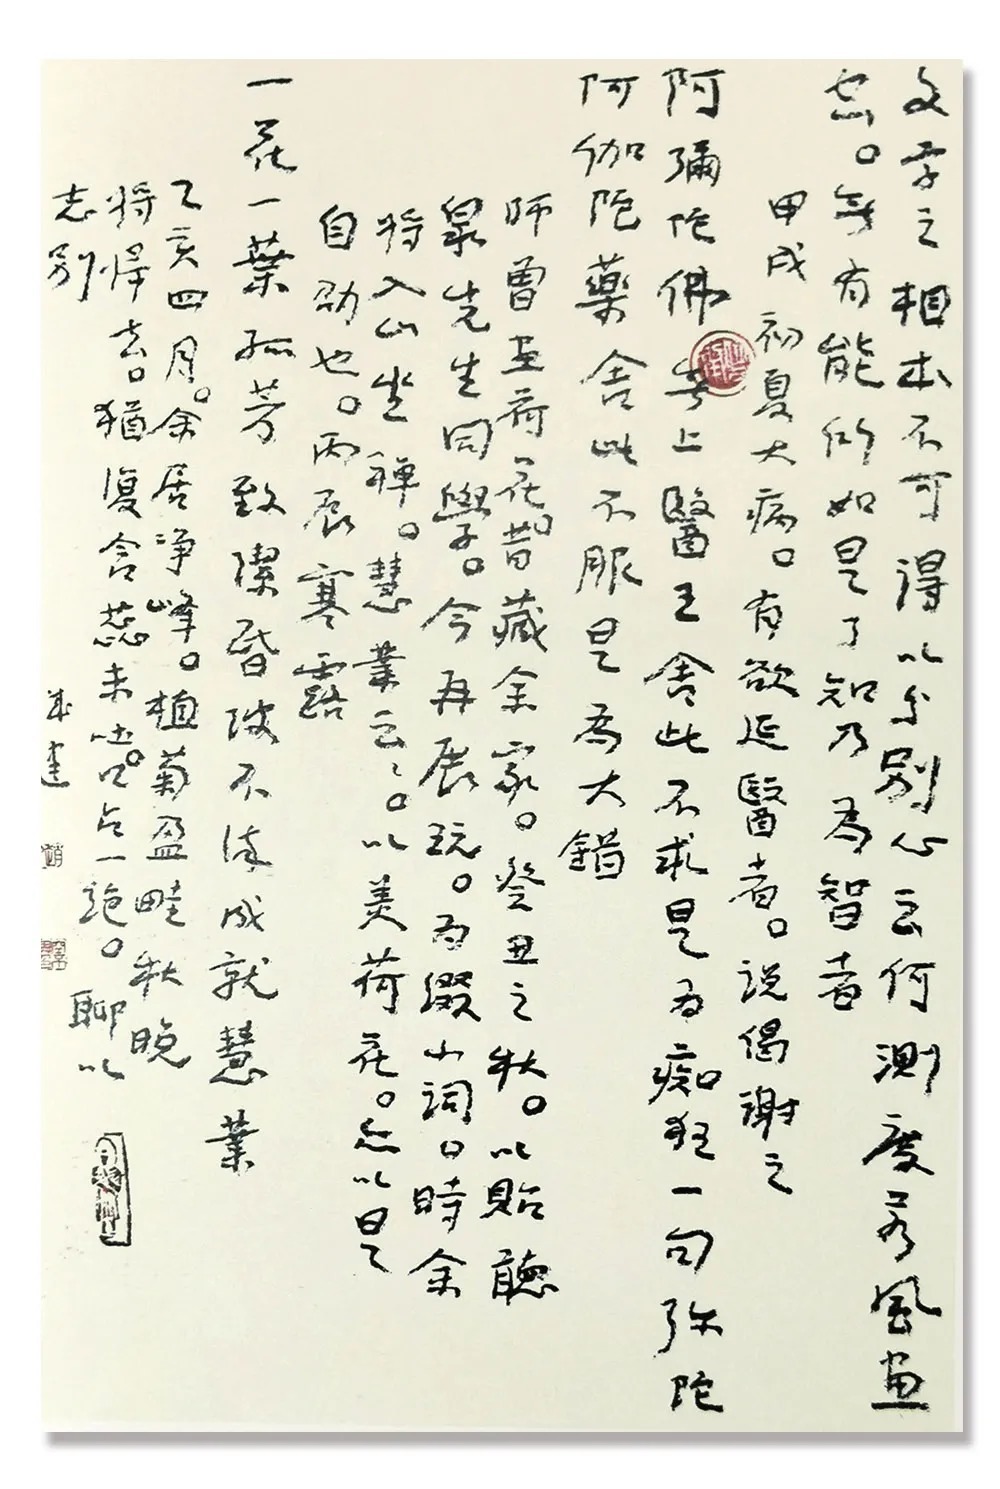 文字之相本不可得以分别心云何測度若風畫
空。無有能所如是了知乃為智者
甲戌初夏大病。有欲延醫者。説偈謝之
阿彌陀佛無上醫王舍此不求是為痴狂一句弥陀
阿伽陀藥舍此不服是為大錯
師曾畫荷花。昔藏余家。癸丑之秋。以貽聽
泉先生同學。今再展玩。為綴小詞。時余
将入山坐禪。慧業云云。以美荷花。亦以是
自劭也。丙辰寒露
一花一葉孤芳致潔昏波不染成就慧業
乙亥四月。余居净峰。植菊盈畦秋晚
将歸去。猶復含蕊未吐。口占一絶。聊以
志别